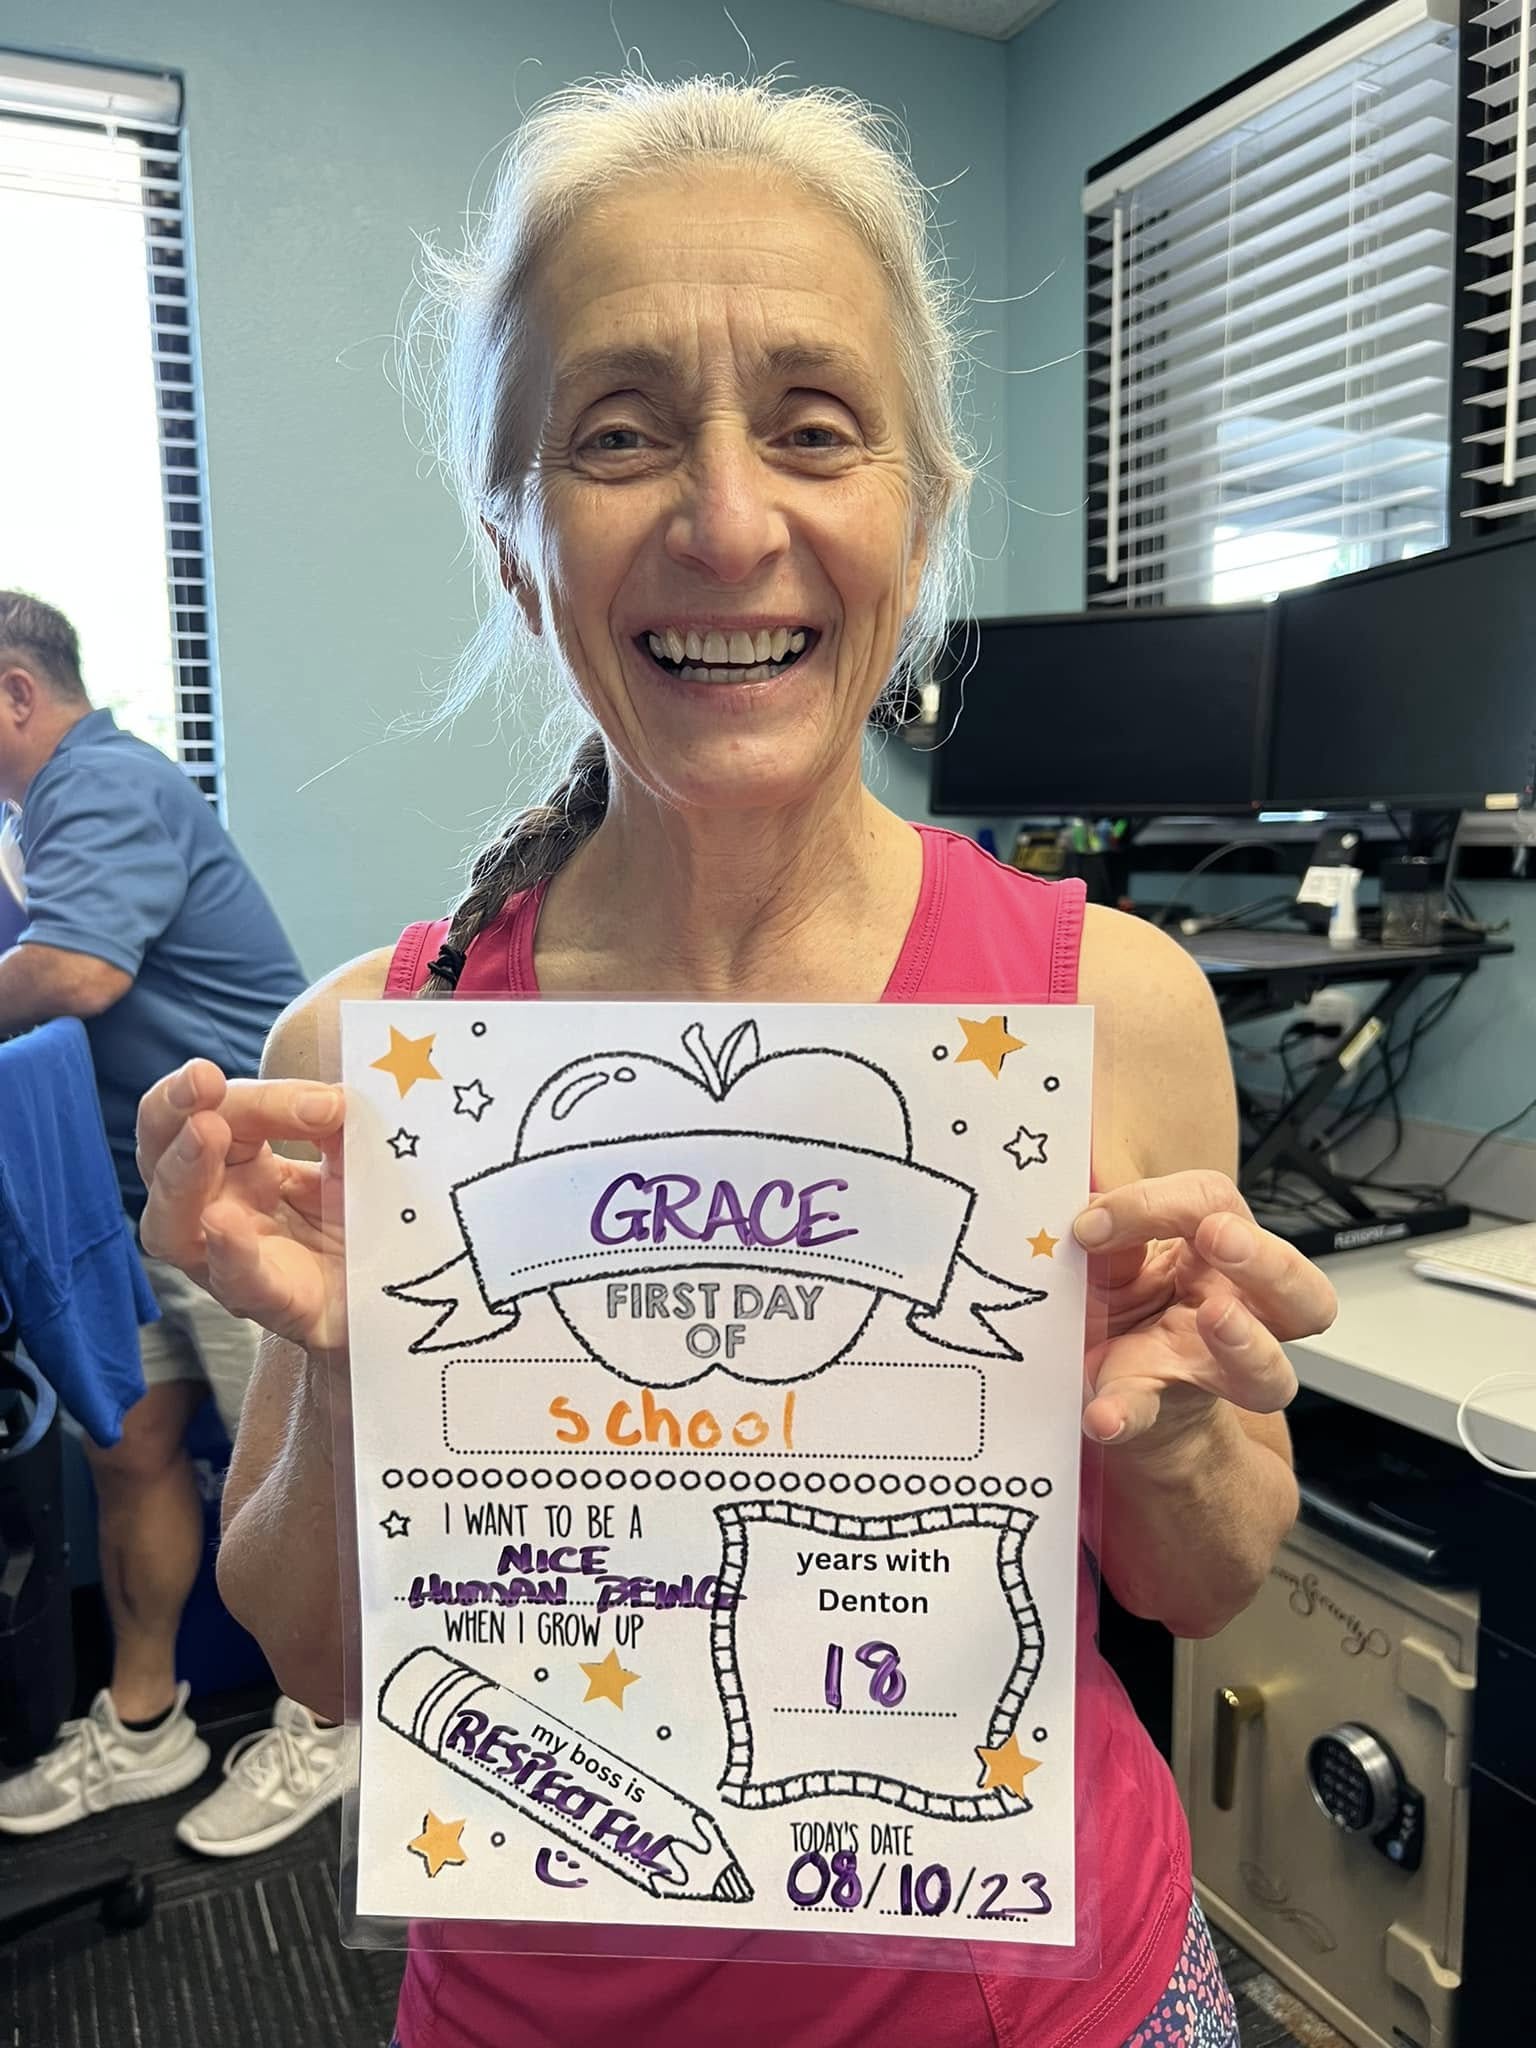 GRACE
FIRST DAY
OF
school
I WANT TO BE A
NICE
HUMAN BEING
WHEN I GROW UP
years with
Denton
18
my boss is
RESPECTFUL
TODAY'S DATE
08/10/23